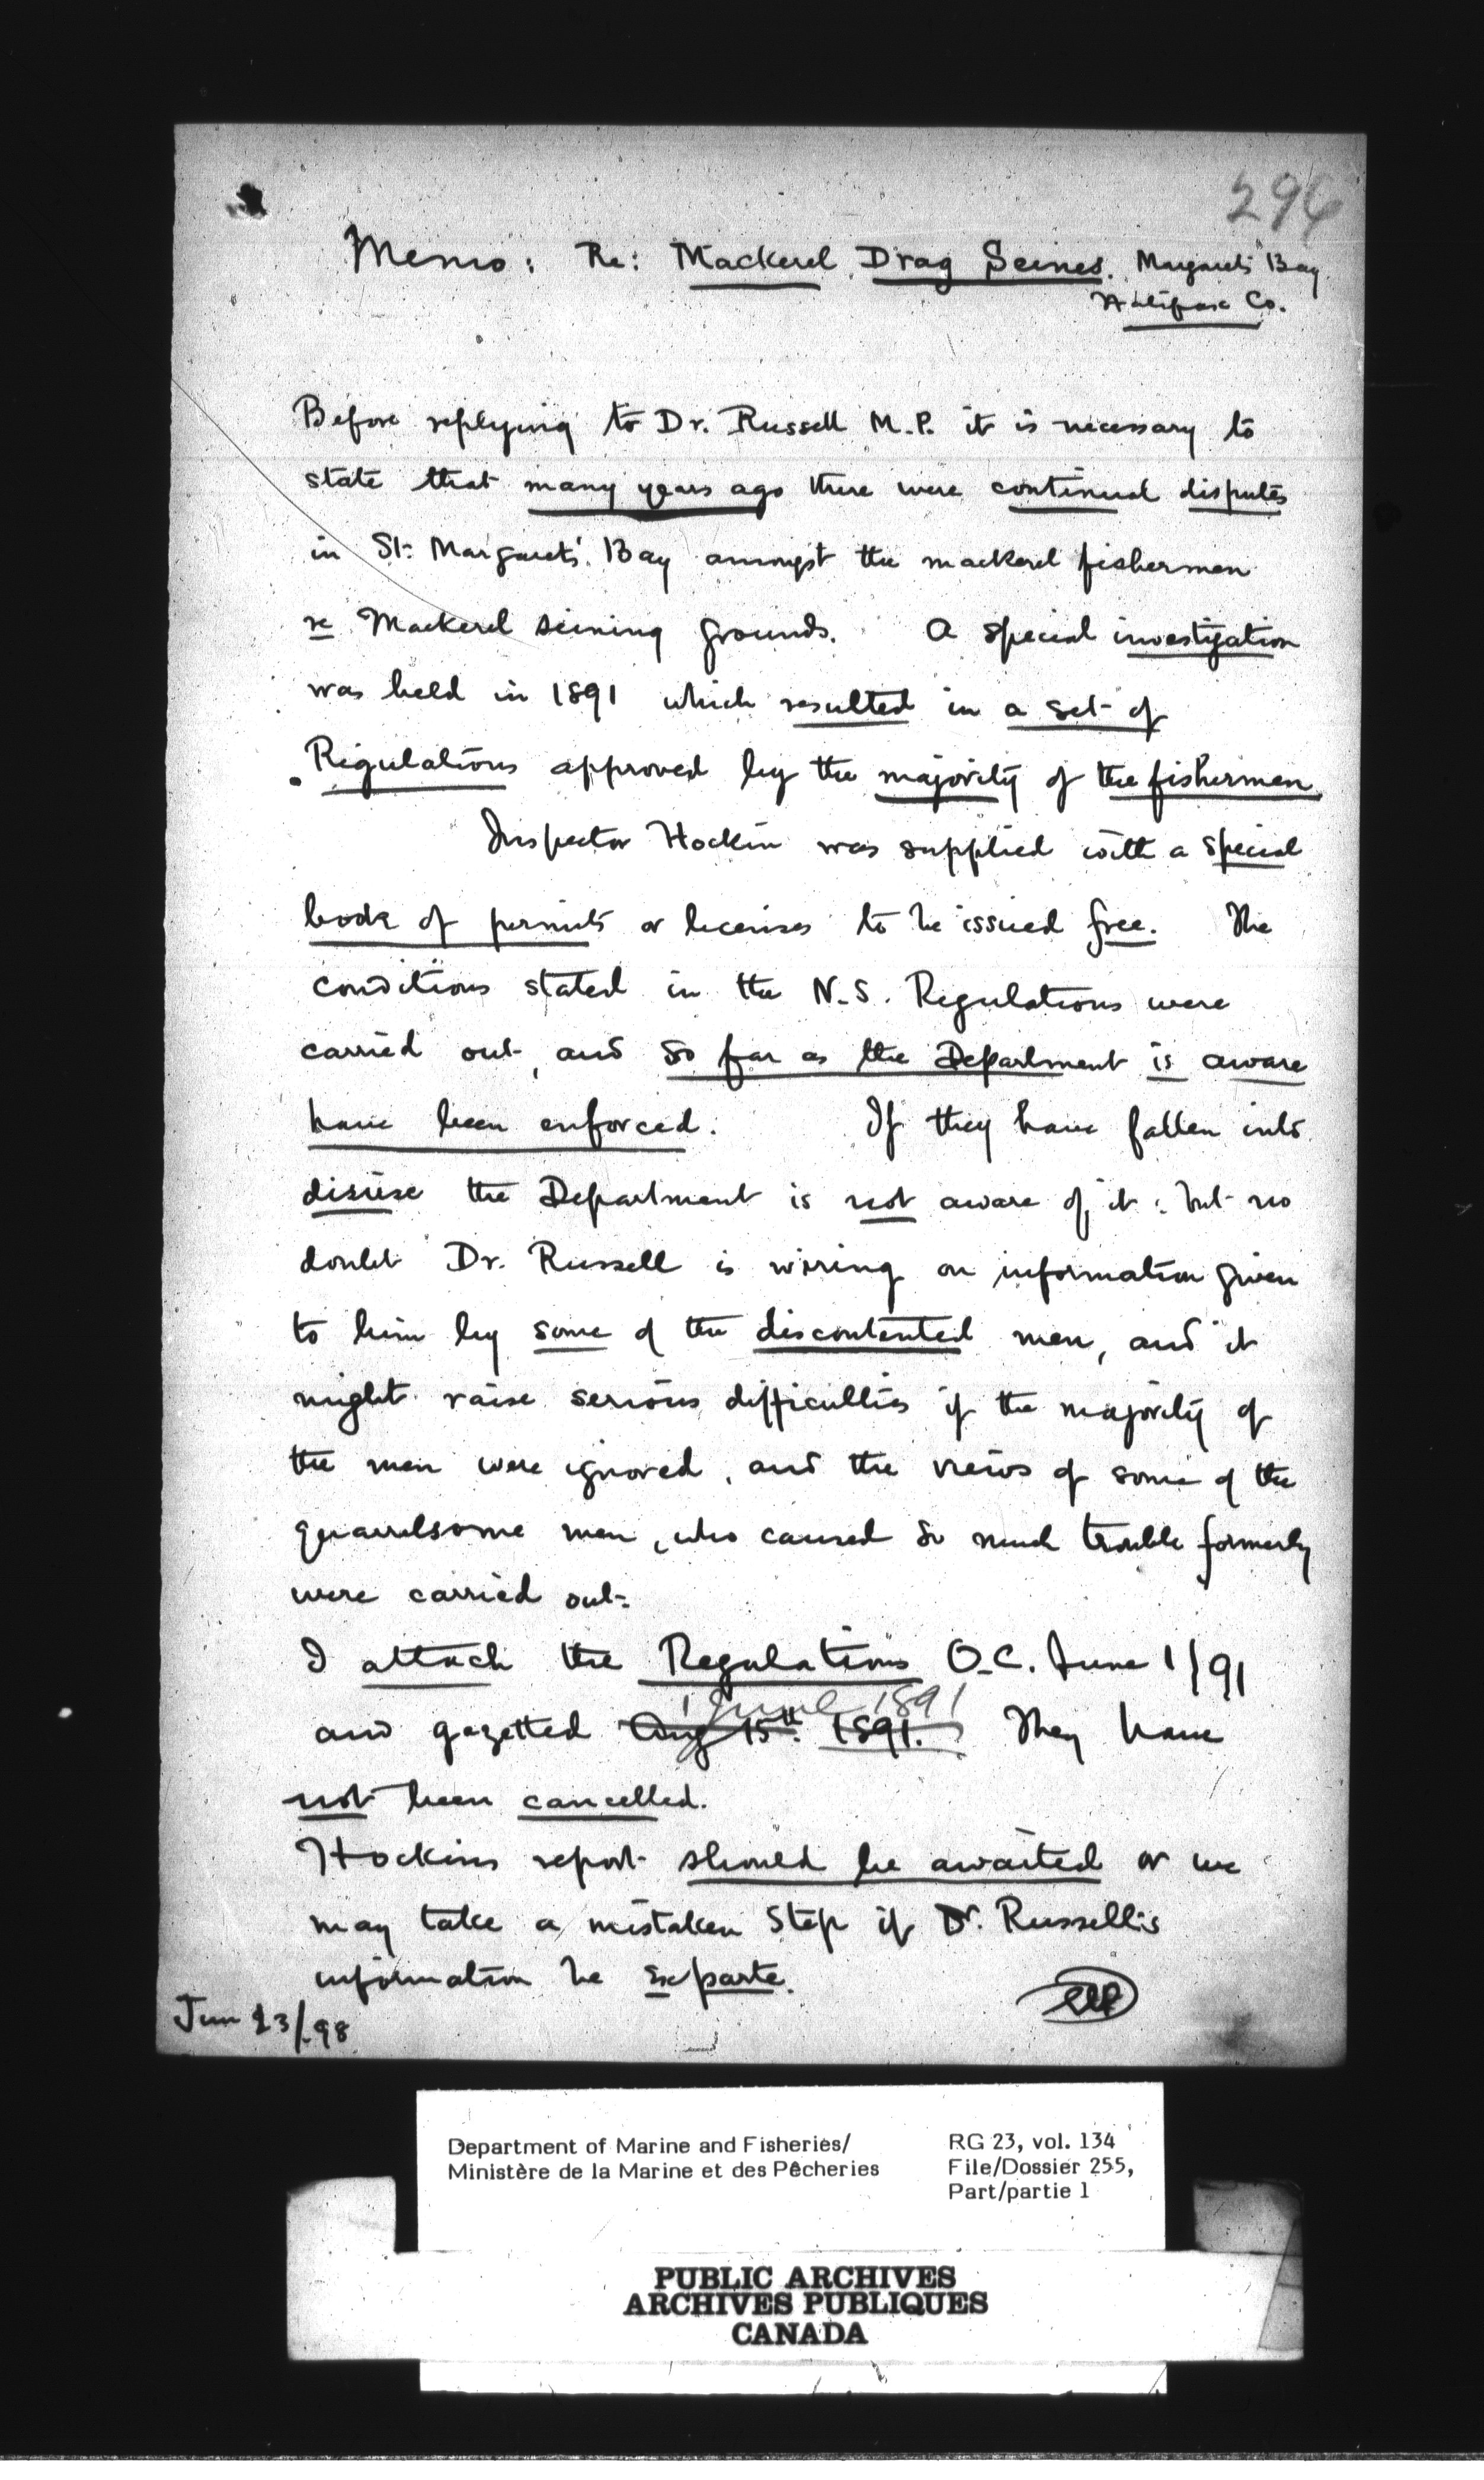 296
Memo: Re: Mackerel Drag Seines. Margarets Bay
Halifax Co.
Before replying to Dr. Russell M.P. it is necessary to
state that many years ago there were continual disputes
in St. Margarets' Bay amongst the mackerel fishermen
re Mackerel seining grounds. A special investigation
was held in 1891 which resulted in a set of
Regulations approved by the majority of the fishermen
Inspector Hockin was supplied with a special
book of permits or licenses to be issued free. The
conditions stated in the N.S. Regulations were
carried out, and so far as the Department is aware
have been enforced. If they have fallen into
disuse the Department is not aware of it: but no
doubt Dr. Russell is wiring on information given
to him by some of the discontented men, and it
might raise serious difficulties if the majority of
the men were ignored, and the views of some of the
quarrelsome men, who caused so much trouble formerly
were carried out.
I attach the Regulations O.C. June 1/91
1 June 1891
and gazetted Aug 15th. 1891. They have
not been cancelled.
Hockins report should be awaited or we
may take a mistaken step if Dr. Russell's
information be exparte.
Jun 23/98
Department of Marine and Fisheries/
Ministère de la Marine et des Pêcheries
RG 23, vol. 134
File/Dossier 255,
Part/partie 1
PUBLIC ARCHIVES
ARCHIVES PUBLIQUES
CANADA